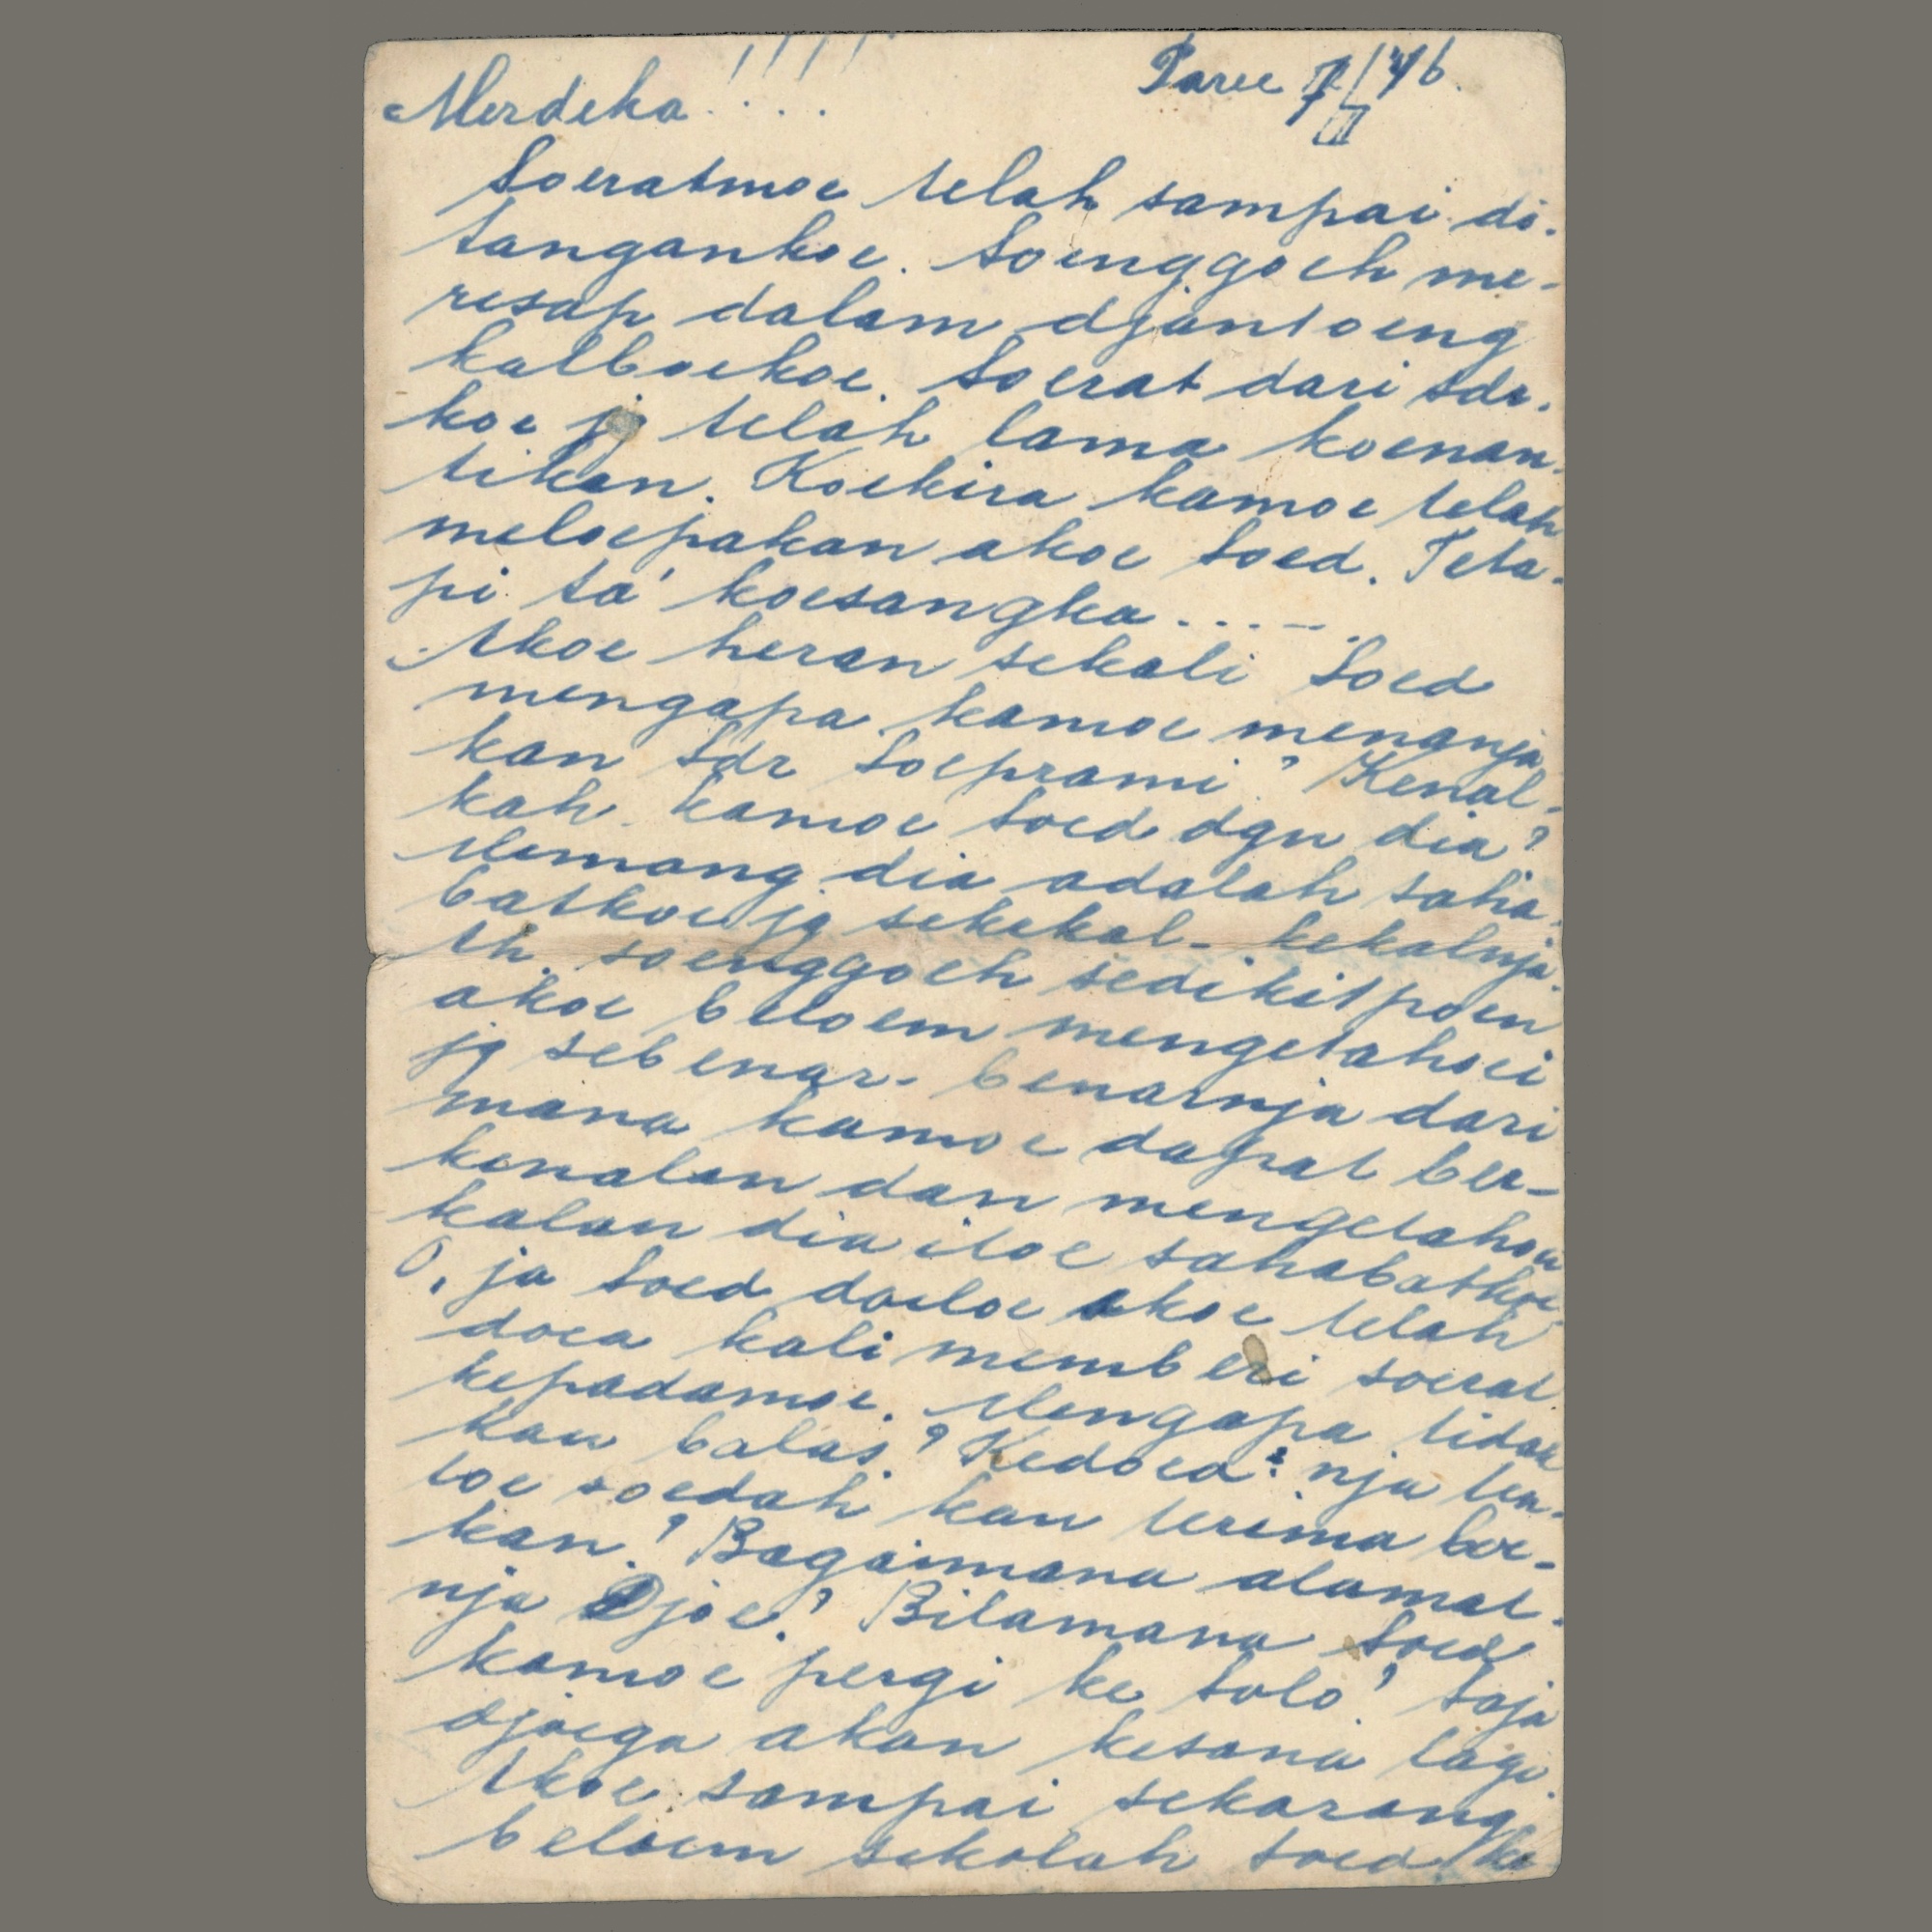 Merdeka!!!!
Paree 7/II '46.
Soeratmoe telah sampai di-
tangankoe. Soenggoeh me-
resap dalam djantoeng
kalboekoe. Soerat dari sdr.
koe jg telah lama koenan-
tikan. Koekira kamoe telah
meloepakan akoe Soed. Teta-
pi ta' koesangka.....
Akoe heran sekali Soed
mengapa kamoe menanja
kan sdr Soeprami? Kenal-
kah kamoe Soed dgn dia?
Memang dia adalah saha-
batkoe jg sekekal-kekalnja.
Ah soenggoeh sedikitpoen
akoe beloem mengetahoei
jg sebenar-benarnja dari
mana kamoe dapat ber-
kenalan dan mengetahoei
kalau dia itoe sahabatkoe
O, ja Soed doeloe akoe telah
doea kali memberi soerat
kepadamoe. Mengapa tidak
kau balas? Kedoea2nja ten-
toe soedah kau terima boe-
kan? Bagaimana alamat-
nja Djoe? Bilamana Soed
kamoe pergi ke Solo? Saja
djoega akan kesana lagi.
Akoe sampai sekarang
beloem sekolah Soed ke